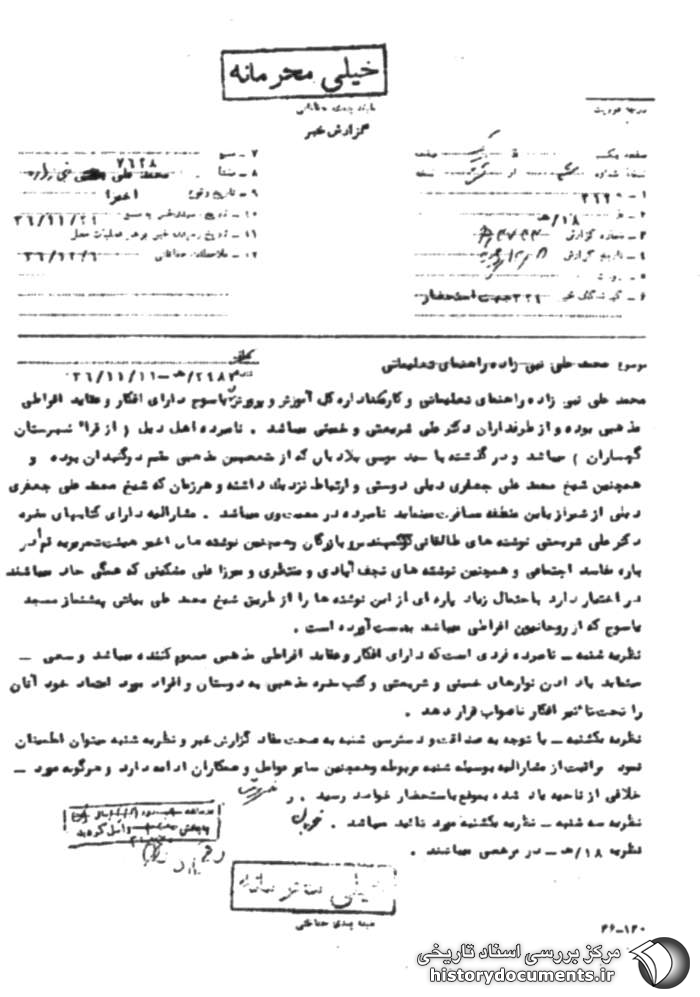 خیلی محرمانه
گزارش خبر
درجه فوریت
صفحه یک
صفحه
نسخه شماره
نسخه
۳ ـ شماره گزارش
۴ ـ تاریخ گزارش
۶ ـ گیرندگان خبر ۳۲۱ جهت استحضار
۷ ـ منبع ۷۶۲۸
۸ ـ منشاء محمد علی نبی زاده
۹ ـ تاریخ وقوع اخیرا
۱۰ ـ تاریخ رسیدن خبر به منبع ۳۶/۱۱/۲۱
۱۱ ـ تاریخ رسیدن خبر به رهبر عملیات محل
۱۲ ـ ملاحظات حفاظتی ۳۶/۱۲/۶
موضوع محمد علی نبی زاده راهنمای تعلیماتی
۳۶/۱۱/۱۱ـ
محمد علی نبی زاده راهنمای تعلیماتی و کارمند اداره کل آموزش و پرورش یاسوج دارای افکار و عقاید افراطی
مذهبی بوده و از طرفداران دکتر علی شریعتی و خمینی میباشد . نامبرده اهل دیل ( از قراء شهرستان
گچساران ) میباشد و در گذشته با سید موسی بلادیان که از متعصبین مذهبی مقیم دوگنبدان بوده و
همچنین شیخ محمد علی جعفری دیلی دوستی و ارتباط نزدیک داشته و هر زمان که شیخ محمد علی جعفری
دیلی از شیراز باین منطقه مسافرت مینماید نامبرده در معیت وی میباشد . مشارالیه دارای کتابهای مضره
دکتر علی شریعتی نوشته های طالقانی و مهندس بازرگان و همچنین نوشته های اخیر هیئت تحریریه قم در
باره مفاسد اجتماعی و همچنین نوشته های نجف آبادی و منتظری و میرزا علی مشکینی که همگی حاد میباشند
در اختیار دارد باحتمال زیاد پاره ای از این نوشته ها را از طریق شیخ محمد علی بیاتی پیشنماز مسجد
یاسوج که از روحانیون افراطی میباشد بدست آورده است .
نظریه شنبه ـ نامبرده فردی است که دارای افکار و عقاید افراطی مذهبی مسموم کننده میباشد و سعی ـ
مینماید با دادن نوارهای خمینی و شریعتی و کتب مضره مذهبی به دوستان و افراد مورد اعتماد خود آنان
را تحت تاثیر افکار ناصواب قرار دهد .
نظریه یکشنبه ـ با توجه به صداقت و دسترسی شنبه به صحت مفاد گزارش خبر و نظریه شنبه میتوان اطمینان
نمود مراقبت از مشارالیه بوسیله شنبه مربوطه و همچنین سایر عوامل و همکاران ادامه دارد و هرگونه مورد ـ
خلافی از ناحیه یاد شده بموقع باستحضار خواهد رسید .
نظریه سه شنبه ـ نظریه یکشنبه مورد تائید میباشد .
نظریه ۱۸/هـ ـ در مرخصی میباشند .
خیلی محرمانه
طبقه بندی حفاظتی
۳۶-۱۲۰
مرکز بررسی اسناد تاریخی
historydocuments.ir